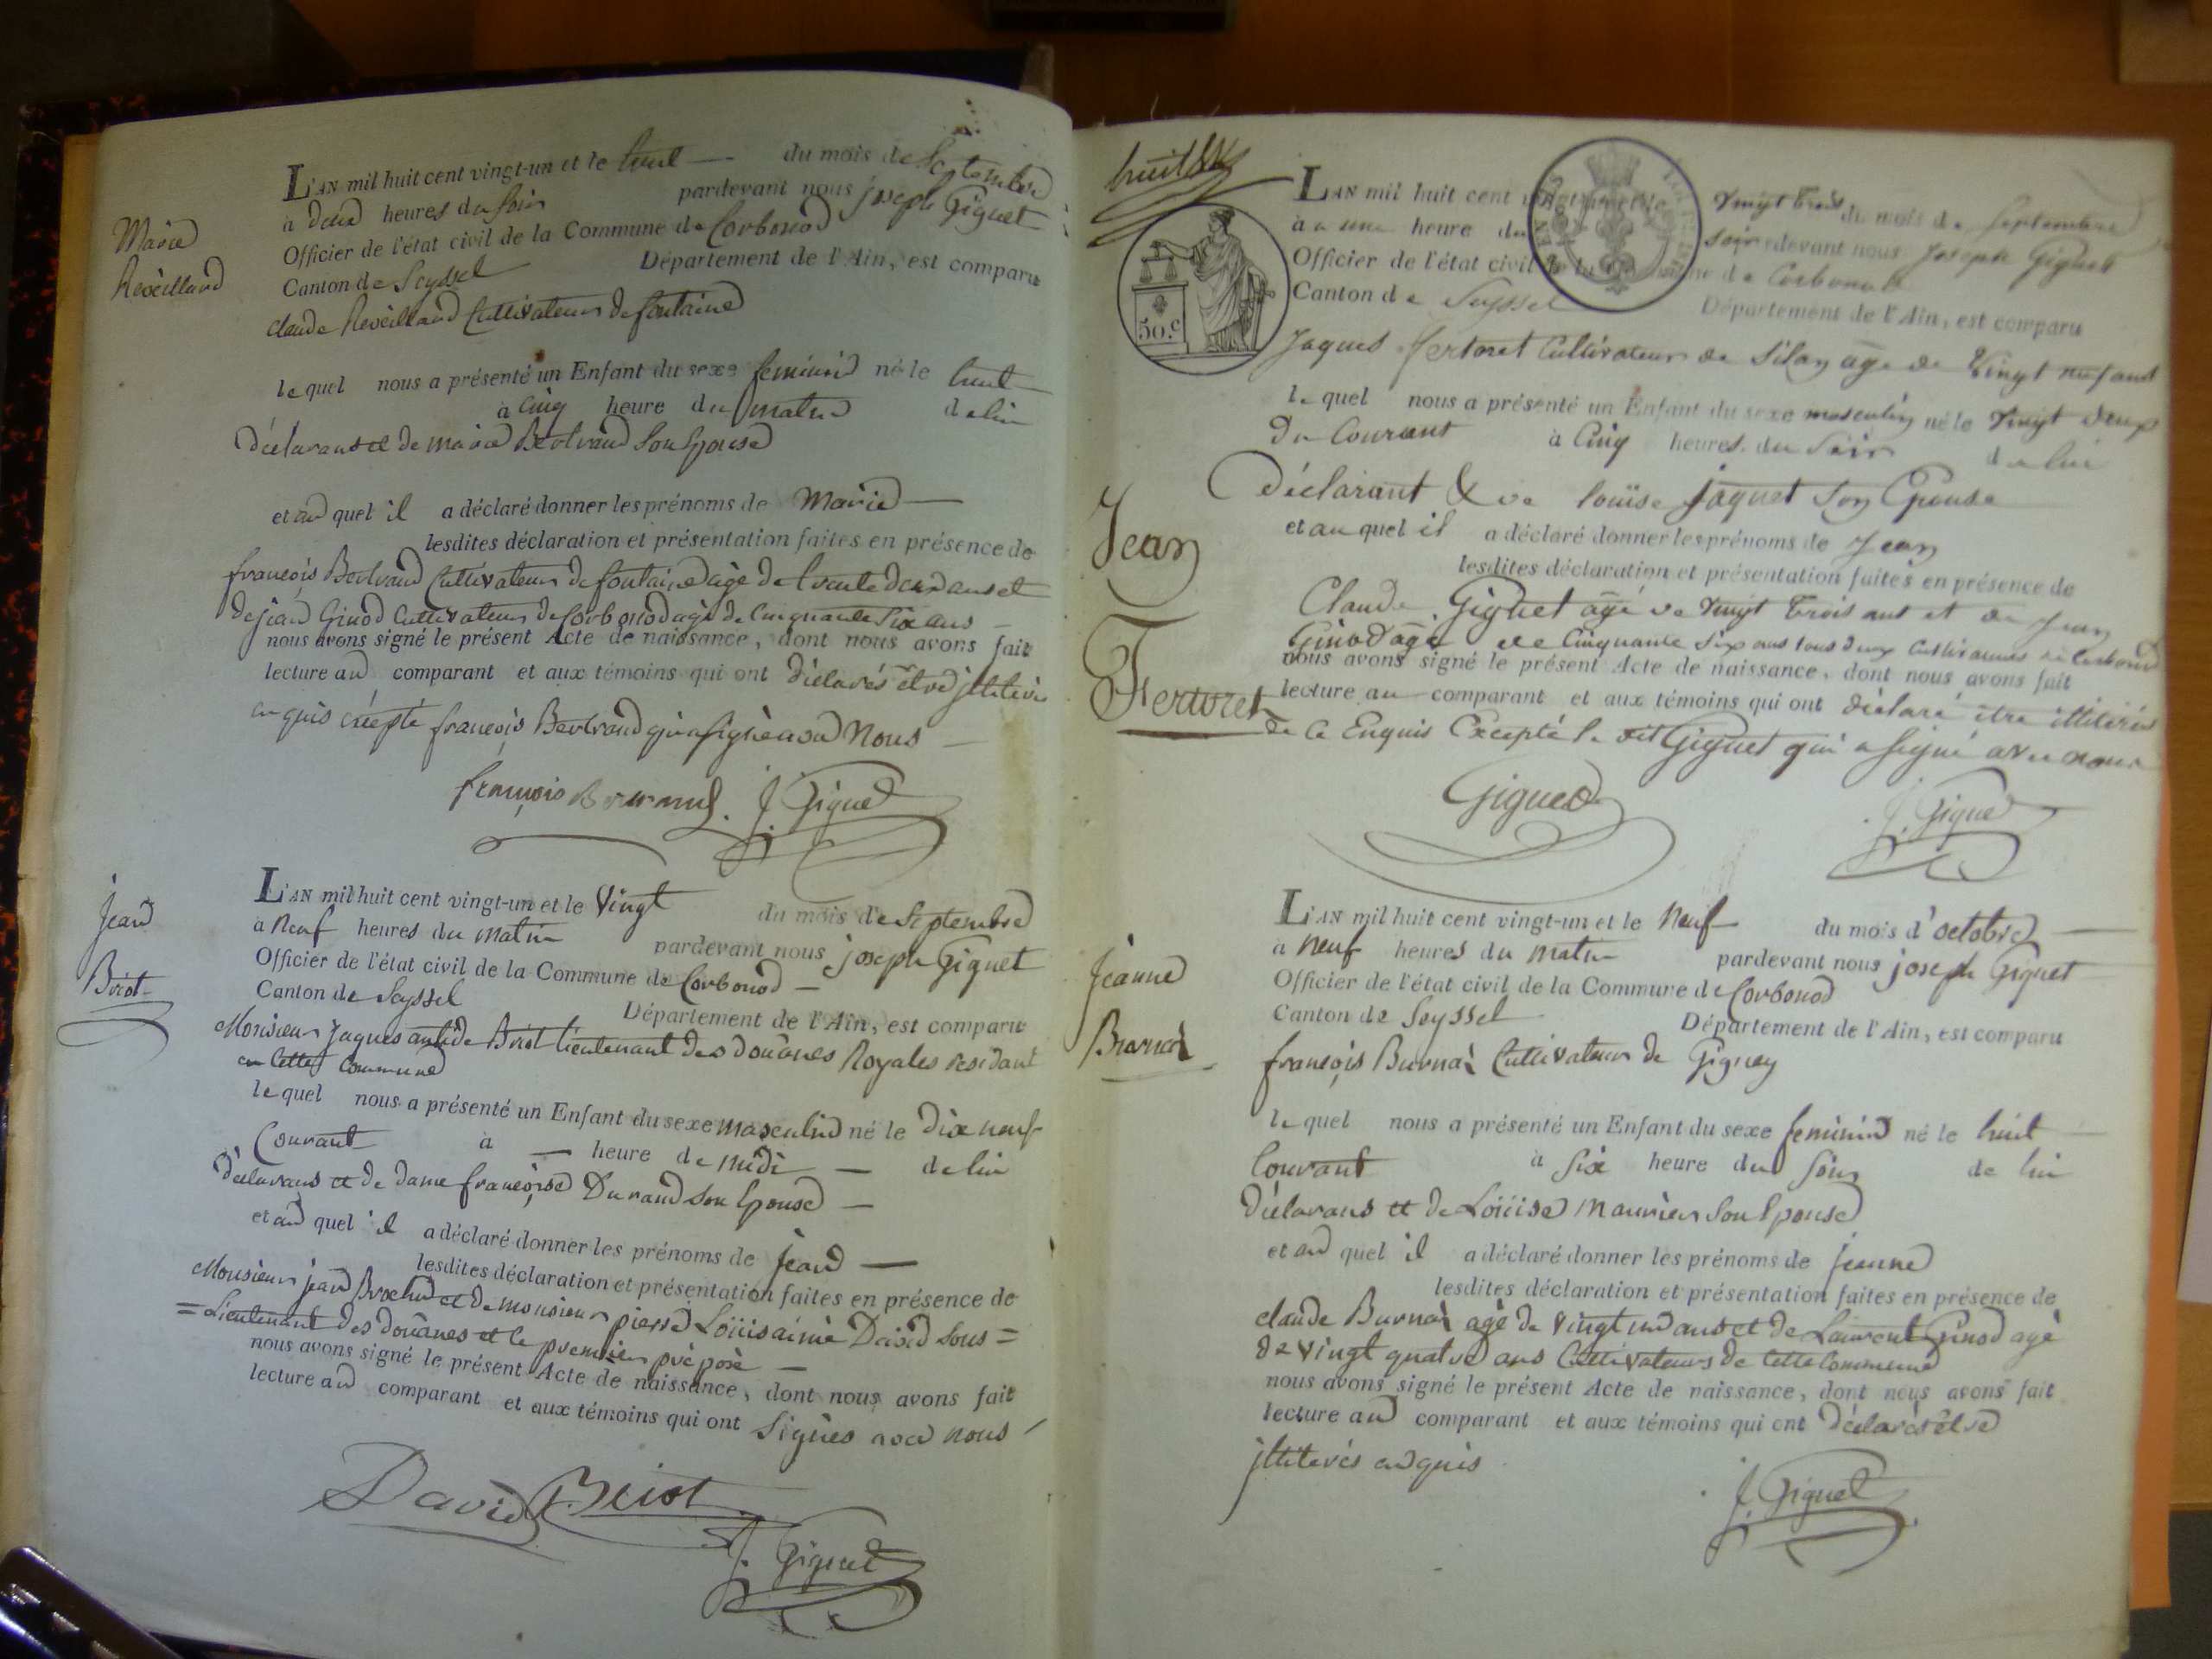 Marie
Reveillard
L'AN mil huit cent vingt-un et le huit du mois de Septembre
à deux heures du soir pardevant nous joseph Giguet
Officier de l'état civil de la Commune de Corbonod
Canton de Seyssel Département de l'Ain, est comparu
claude Reveillard Cultivateur de fontaine
lequel nous a présenté un Enfant du sexe feminin né le huit
à cinq heure du matin de lui
déclarans et de marie Bertrand son Epouse
et au quel il a déclaré donner les prénoms de Marie
lesdites déclaration et présentation faites en présence de
françois Bertrand Cultivateur de fontaine agé de trente deux ans et
de jean Ginod Cultivateur de Corbonod agé de Cinquante Six ans
nous avons signé le présent Acte de naissance, dont nous avons fait
lecture au comparant et aux témoins qui ont déclarés être jlliterés
enquis excepté françois Bertrand qui a signé avec Nous
françois Bertrand J. Giguet
Jean
Briot
L'AN mil huit cent vingt-un et le Vingt du mois de Septembre
à Neuf heures du matin pardevant nous joseph Giguet
Officier de l'état civil de la Commune de Corbonod
Canton de Seyssel Département de l'Ain, est comparu
Monsieur Jaques antide Briot lieutenant des douânes Royales residant
en cette Commune
lequel nous a présenté un Enfant du sexe masculin né le Dix neuf
Courant à heure de midi de lui
déclarans et de dame françoise Durand son Epouse
et au quel il a déclaré donner les prénoms de jean
lesdites déclaration et présentation faites en présence de
Monsieur jean et de monsieur pierre Loüis aimé David Sous =
= Lieutenant des douânes et le premier préposé
nous avons signé le présent Acte de naissance, dont nous avons fait
lecture au comparant et aux témoins qui ont signés avec nous
David Briot
J. Giguet
huit
50.c
L'AN mil huit cent vingt-un et le Vingt trois du mois de Septembre
à une heure du soir pardevant nous Joseph Giguet
Officier de l'état civil de la Commune de Corbonod
Canton de Seyssel Département de l'Ain, est comparu
Jaques fertoret Cultivateur de Silan âgé de Vingt neuf ans
lequel nous a présenté un Enfant du sexe masculin né le Vingt deux
du Courant à Cinq heures du Soir de lui
Déclarant & de loüise Jaquet son Epouse
et au quel il a déclaré donner les prénoms de Jean
Jean
Fertoret
lesdites déclaration et présentation faites en présence de
Claude Giguet âgé de Vingt trois ans et de Jean
Ginod âgé de Cinquante Six ans tous deux Cultivateurs de Corbonod
nous avons signé le présent Acte de naissance, dont nous avons fait
lecture au comparant et aux témoins qui ont déclaré être illitérés
de ce Enquis Excepté le dit Giguet qui a signé avec nous
Giguet J. Giguet
Jeanne
Burnaì
L'AN mil huit cent vingt-un et le Neuf du mois d'octobre
à neuf heures du matin pardevant nous joseph Giguet
Officier de l'état civil de la Commune de Corbonod
Canton de Seyssel Département de l'Ain, est comparu
françois Burnaì Cultivateur de Gigney
lequel nous a présenté un Enfant du sexe feminin né le huit
Courant à Six heure du Soir de lui
déclarans et de Loüise Maurier son Epouse
et au quel il a déclaré donner les prénoms de jeanne
lesdites déclaration et présentation faites en présence de
claude Burnaì agé de Vingt un ans et de Laurent Ginod agé
de vingt quatre ans Cultivateurs de cette Commune
nous avons signé le présent Acte de naissance, dont nous avons fait
lecture au comparant et aux témoins qui ont déclarés être
jlliterés enquis
J. Giguet